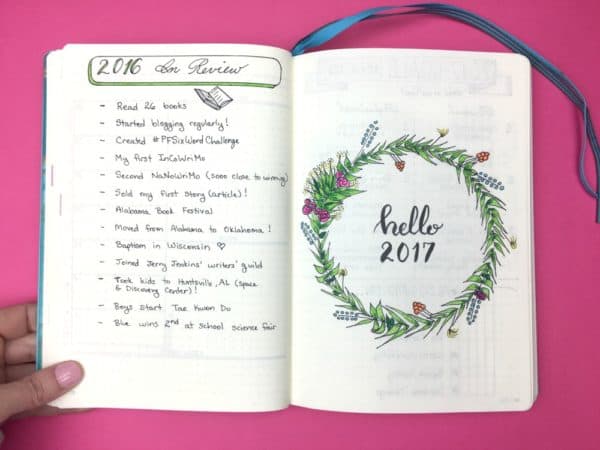 2016 In Review
- Read 26 books
- Started blogging regularly!
- Created #PFSixWordChallenge
- My first InCoWriMo
- Second NaNoWriMo (sooo close to winning)
- Sold my first story (article)!
- Alabama Book Festival
- Moved from Alabama to Oklahoma!
- Baptism in Wisconsin ♡
- Joined Jerry Jenkins' writers' guild
- Took kids to Huntsville, AL (Space
& Discovery Center)!
- Boys start Tae Kwon Do
- Blue wins 2nd at school science fair
hello
2017